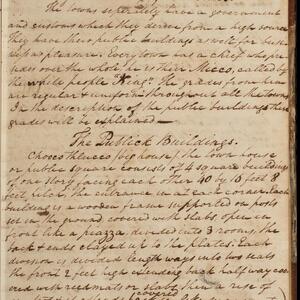 The towns separately have a government
and customs which they derive from a high source
They have their public buildings as well for busi-
ness as pleasure. Every town has a chief who pre-
sides over the whole he is their Micco, called by
the white people "King." The grades from him
are regular & uniform throughout all the towns
In the description of the public buildings these
grades will be explained
The Publick Buildings.
Choocothlucco, (big house) the town house
or public square consists of 4 square buildings
of one story, facing each other 40 by 16 feet 8
feet pitch, the entrance at each corner. Each
building is a wooden frame supported on posts
set in the ground covered with slabs open in
front like a piazza divided into 3 rooms, the
back & ends clayed up to the plates. Each
division is divided length ways into two seats
the front 2 feet high extending back half way cover-
ed with reedmats or slabs then a rise of
covered